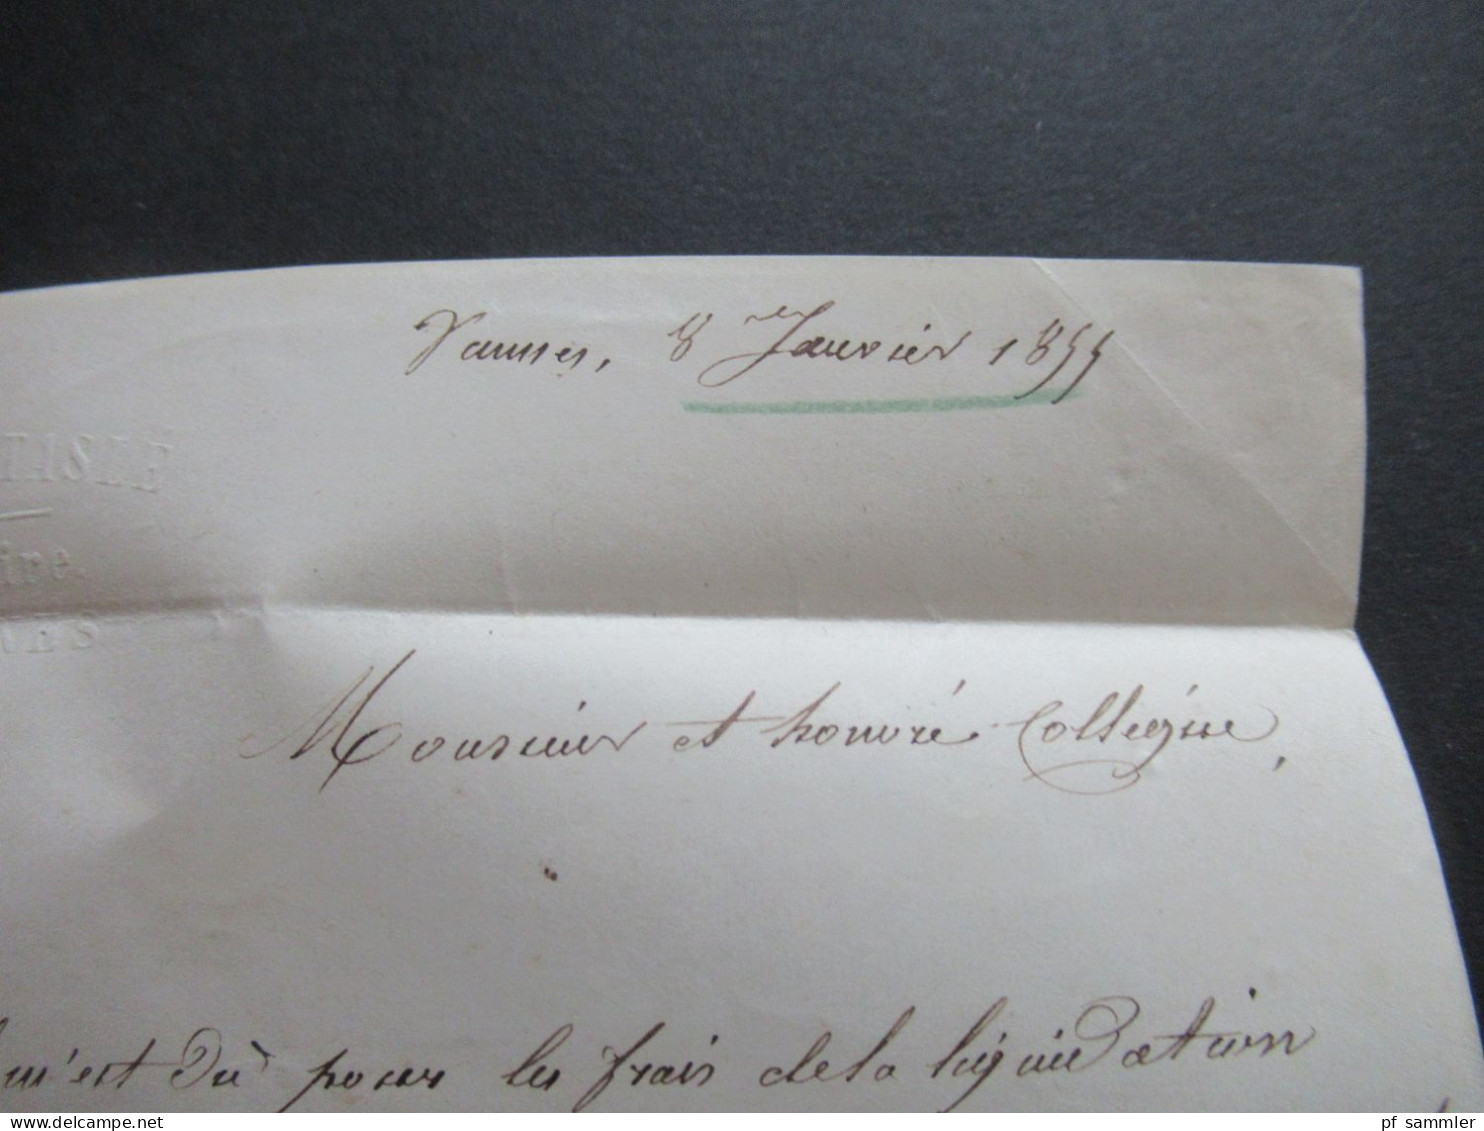 Vannes, 8 Janvier 1855
TASLÉ
ire.
NES
Monsieur et honoré Collègue,
m'est dû pour les frais de la liquidation
pf sammler
delcampe.net